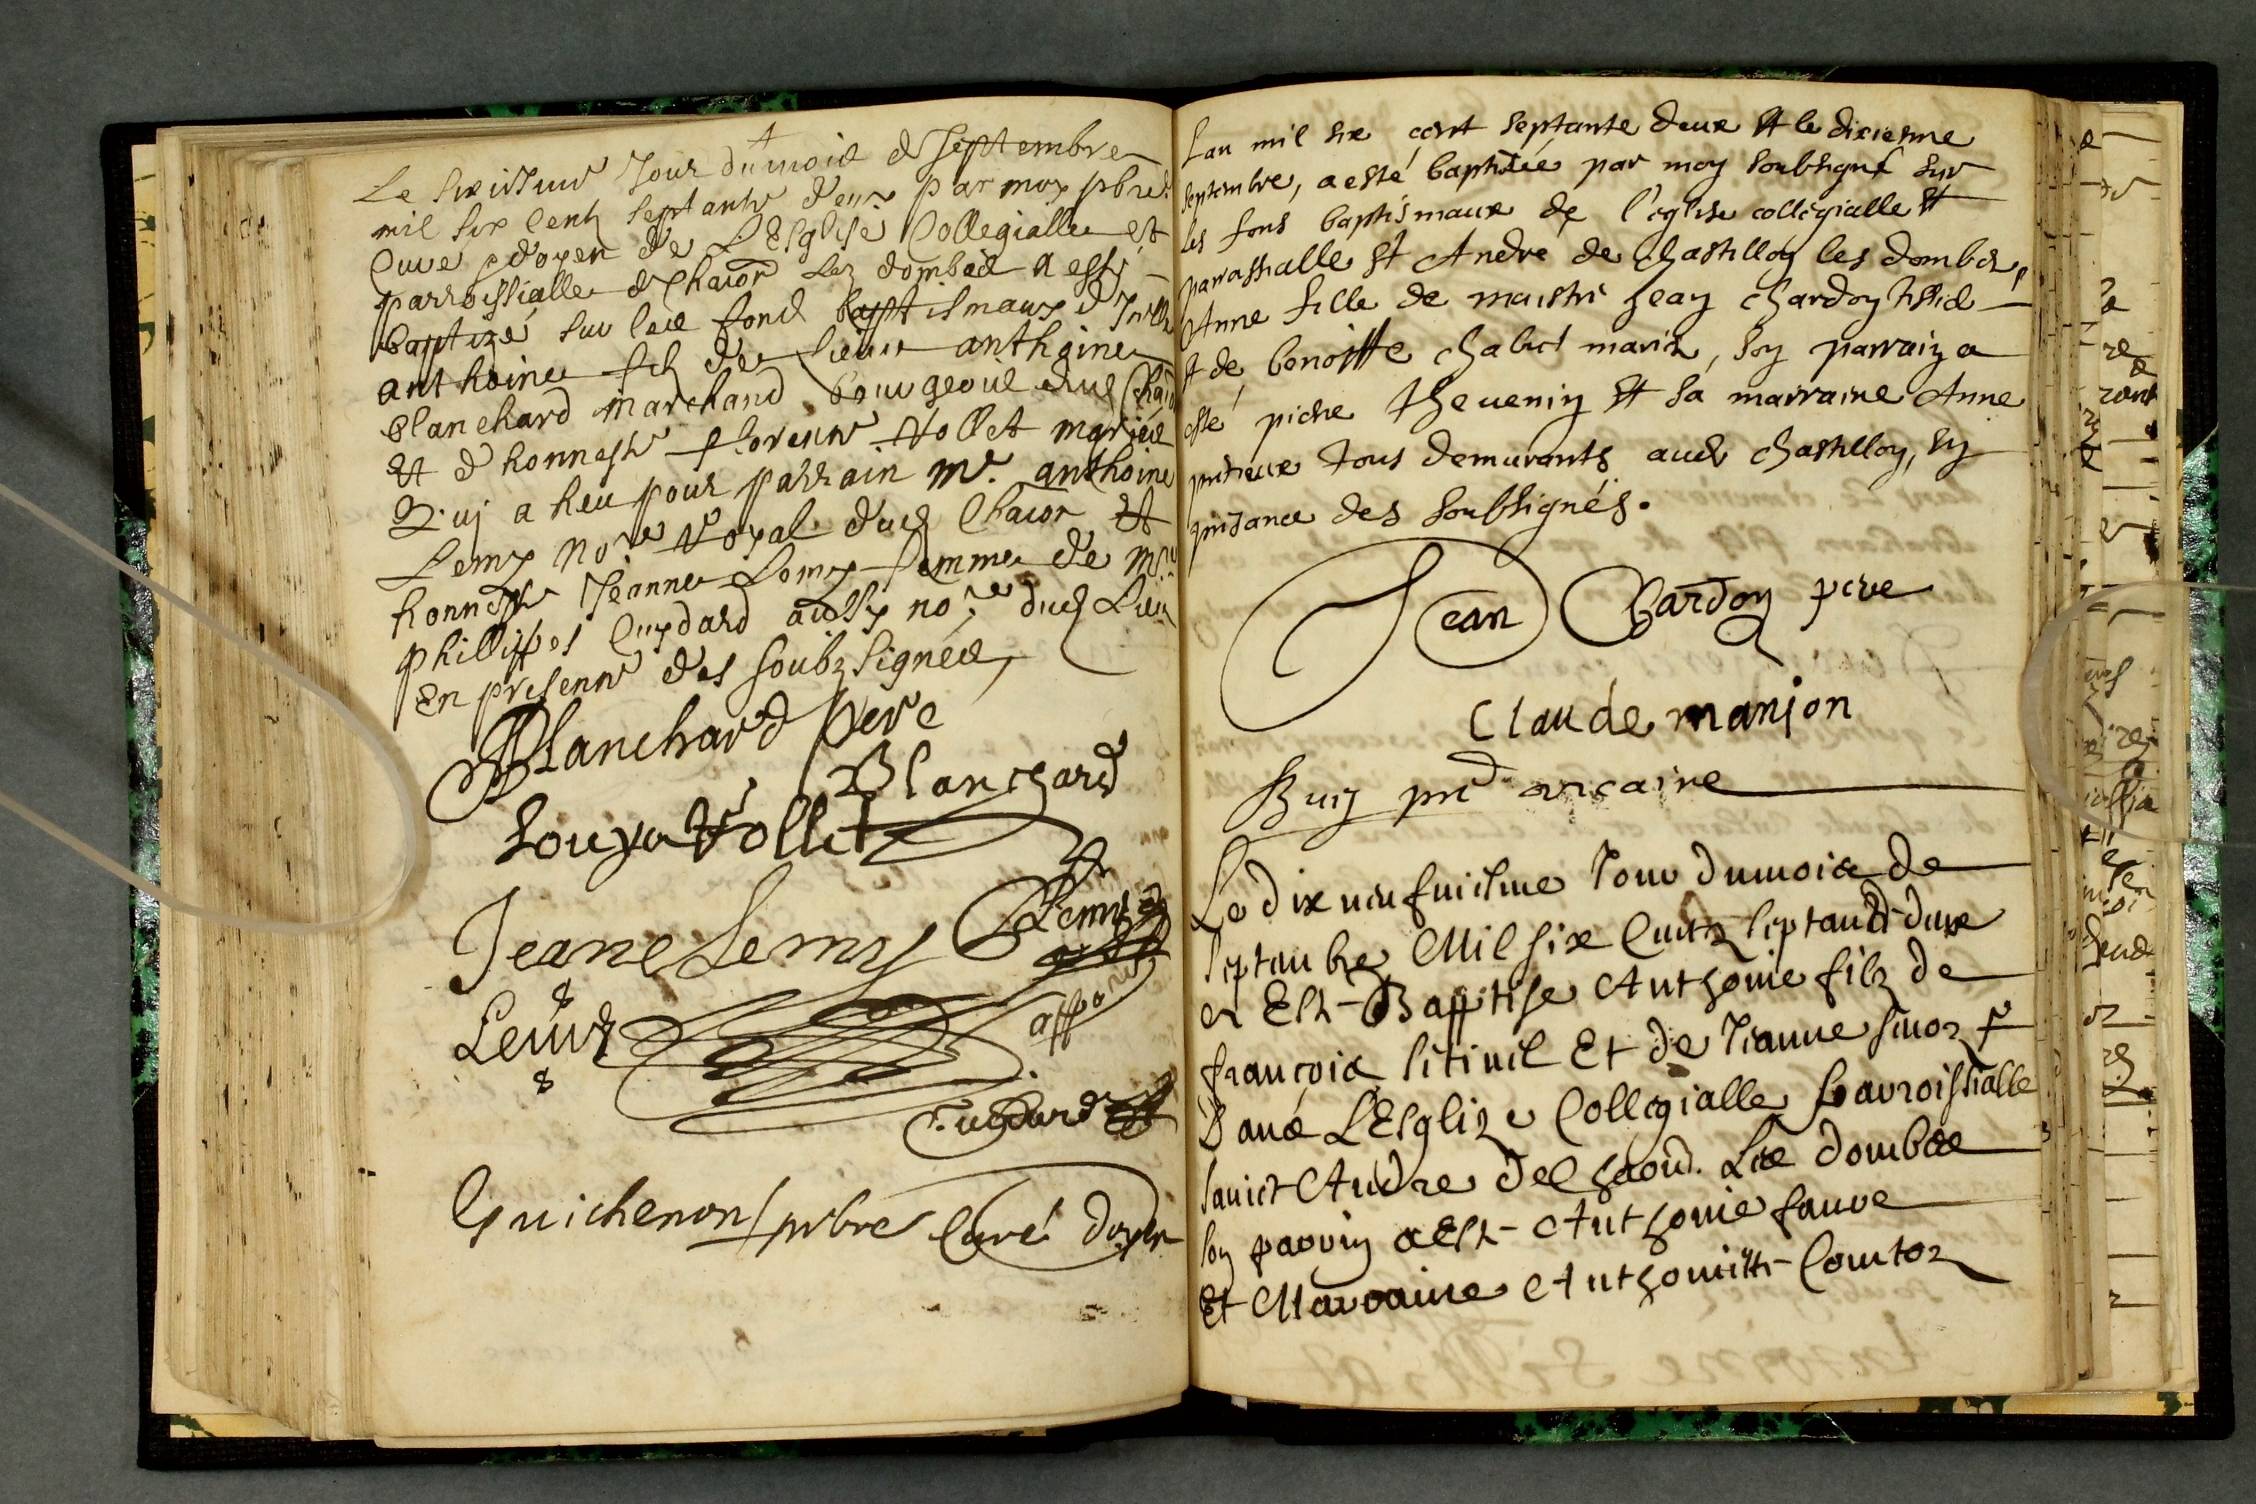 Le sixiesme Jour du mois de Septembre
mil six centz septante deux par moy pbre
Curé et doyen de L'Esglise Collegialle et
parroissialle de Chaon Lez dombes a esté
baptizé sur les fonds baptismaux d'Icelle
anthoine filz de sieur anthoine
blanchard marchand bourgeois dud Chaon
Et d'honneste florence Vollet mariés
Qui a heu pour parrain Me. anthoine
Lemy nore Royal dud Chaon Et
honneste Jeanne Lemy femme de Me
phillippes Cuydard aussy nore dud Lieu
En presence des soubzsignés,
Blanchard pere
Blanchard
Vollet
Jeane Lemy Lemy
Lemy
Cuydard
Guichenon pbre Curé doyen
Lan mil six cent septante deux et le dixiesme
septembre, a esté baptisée par moy soubsigné sur
les fons baptismaux de l'eglise collegialle et
parrossialle St Andre de Chastillon les dombes,
Anne fille de maistre Jean Chardon tissie
et de benoitte Chabet mariés, son parrain a
esté piere thevenin et sa marraine Anne
tous demurants aud Chastillon, en
presance des soubsignés.
Jean Chardon pere
Claude manjon
Buy pre vicaire
Le dix neufuiesme Jour du mois de
septambre Mil six Centz septante deux
a Esté Baptise Anthoine filz de
françois et de Jeanne
Dans L'Esglize Collegialle Parroissialle
sainct Andre de Chaon Les dombes
son parrin a Esté Anthoine fauve
Et Marraine Anthoinette Comtoz